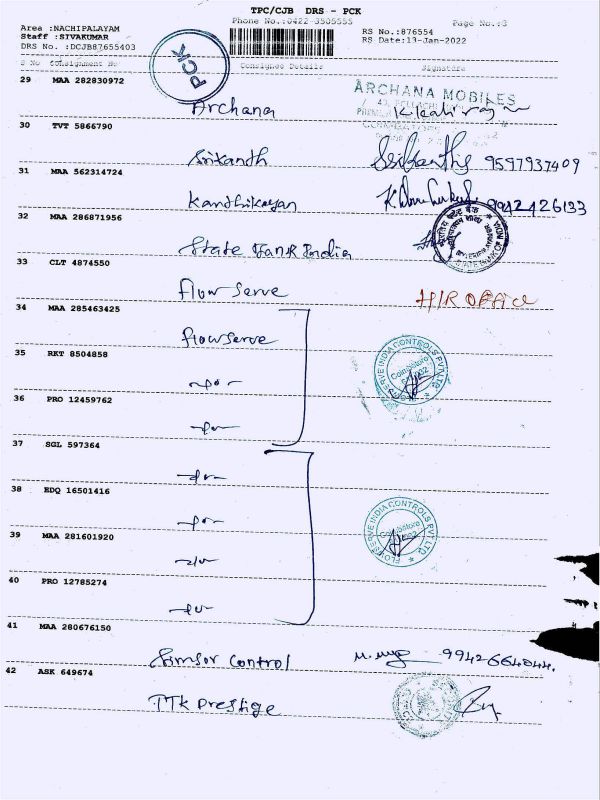 TPC/CJB DRS - PCK
Phone No.:0422-3505555
Page No.:3
Area :NACHIPALAYAM
Staff :SIVAKUMAR
DRS No. :DCJB87655403
RS No.:876554
RS Date:13-Jan-2022
PCK
S No Consignment No Consigned Details Signature
29 MAA 282830972
Archana
ARCHANA MOBILES
30 TVT 5866790
Srikanth 9597937409
31 MAA 562314724
Kandhikayan 9942426133
32 MAA 286871956
State Bank India
33 CLT 4874550
flow serve H/R OFFICE
34 MAA 285463425
flowserve
FLOWSERVE INDIA CONTROLS PVT LTD
Coimbatore
35 RKT 8504858
-do-
36 PRO 12459762
-do-
37 SGL 597364
-do-
38 EDQ 16501416
-do-
FLOWSERVE INDIA CONTROLS PVT LTD
Coimbatore
39 MAA 281601920
-do-
40 PRO 12785274
-do-
41 MAA 280676150
control
42 ASK 649674
TTK prestige